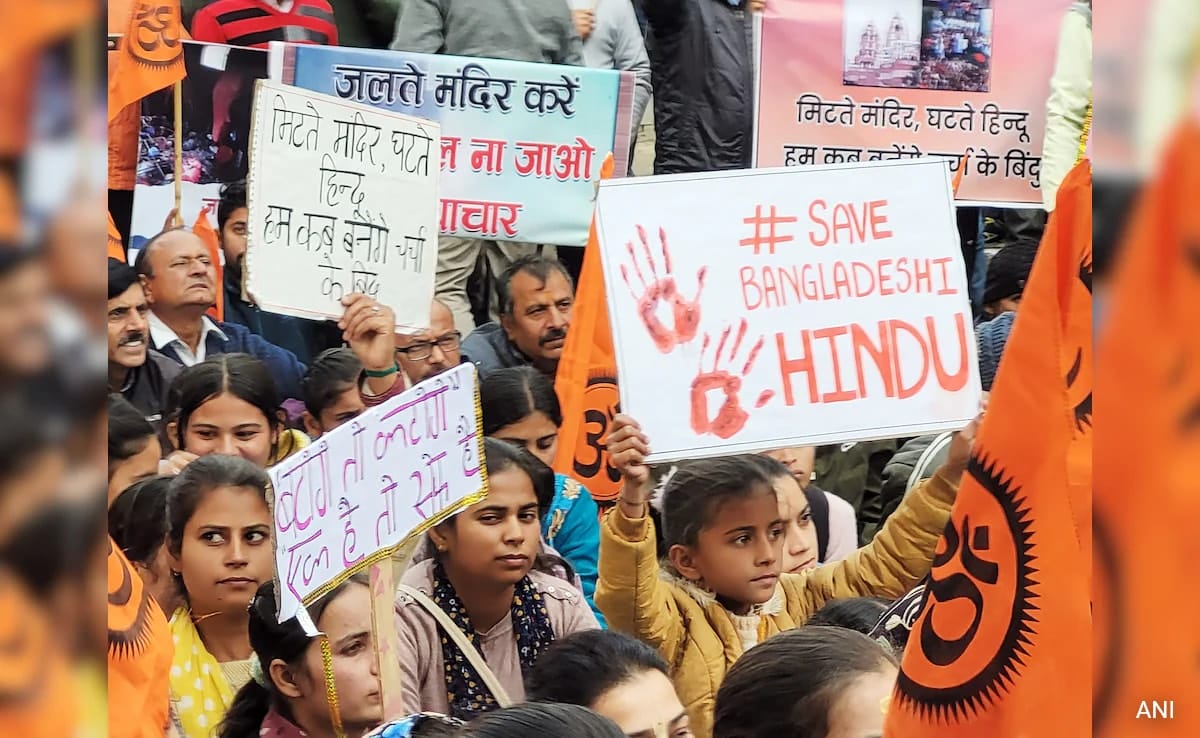 जलते मंदिर करें
ल ना जाओ
मिटते मंदिर, घटते हिन्दू
हम कब बनेंगे चर्चा के बिंदु
मिटते मंदिर, घटते
हिन्दू
हम कब बनेंगे चर्चा
के बिंदु
# SAVE
BANGLADESHI
HINDU
बटेंगे तो कटेंगे"
"एक है तो सेफ है
ANI